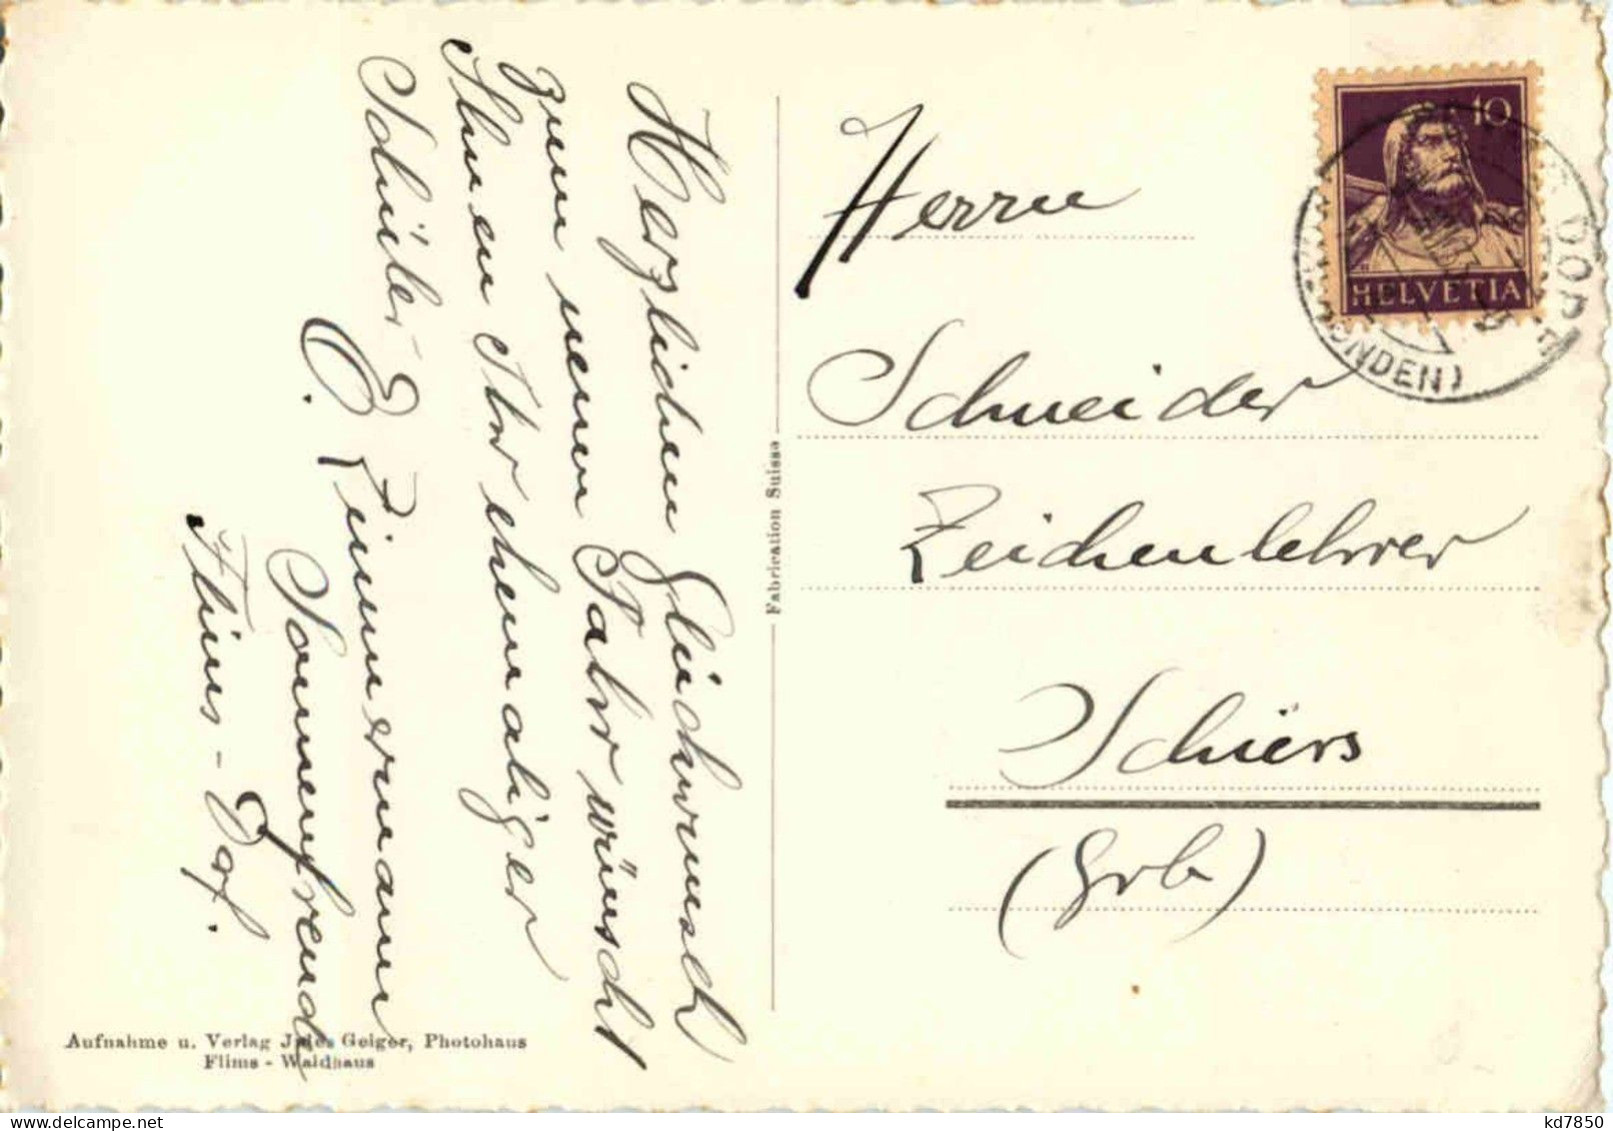 Herzlichen Glückwunsch
zum neuen Jahr wünscht
Ihnen Ihr ehemaliger
Schüler
E. Zimmermann
Sonnenfreude
Flims - Dorf.
Aufnahme u. Verlag Jules Geiger, Photohaus
Flims - Waldhaus
Fabrication Suisse
10
HELVETIA
Herrn
Schneider
Zeichenlehrer
Schiers
(Grb)
kd7850